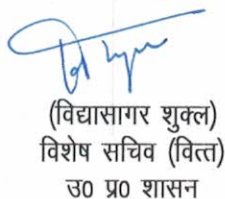 (विद्यासागर शुक्ल)
विशेष सचिव (वित्त)
उ0 प्र0 शासन